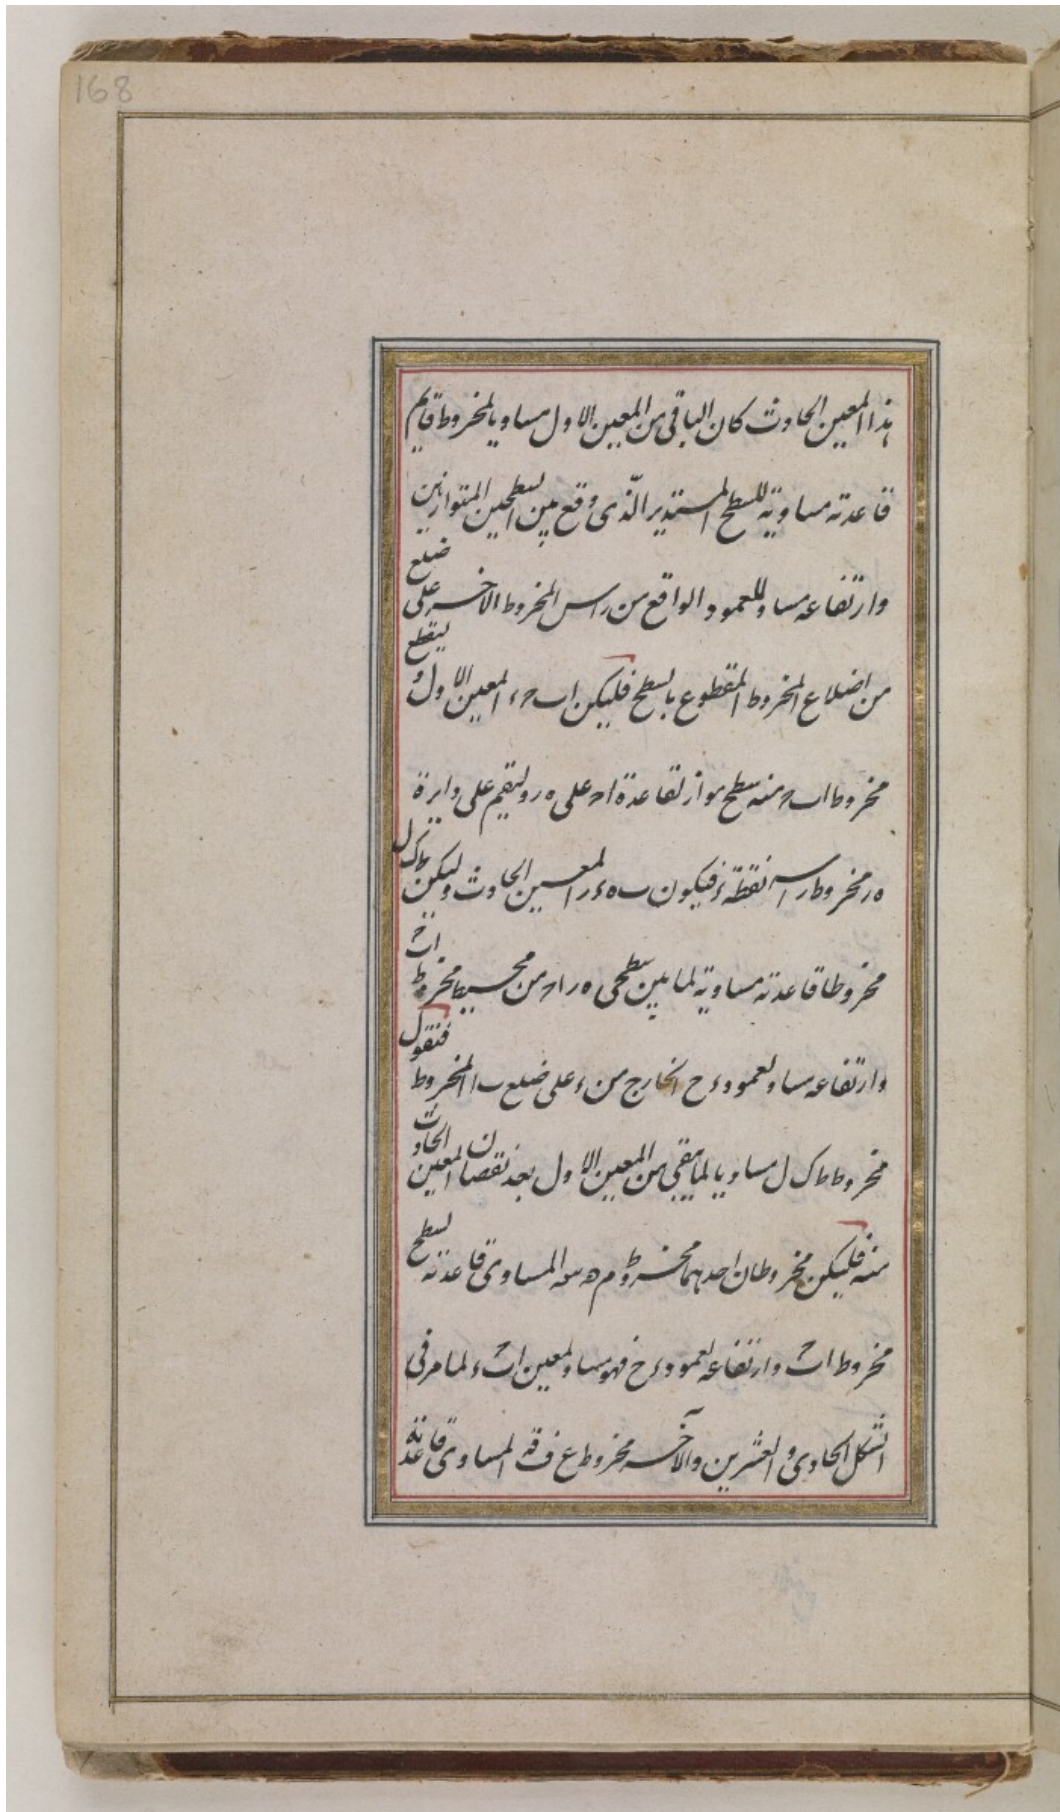 168
هذا المعين الحادث كان الباقي من المعين الاول مساويا لمخروط قايم
قاعدته مساوية للسطح المستدير الّذي وقع بين السطحين المتوازيين
وارتفاعه مساو للعمود الواقع من راس المخروط الاخر على ضلع
من اضلاع المخروط المقطوع بالسطح فليكن اب حء المعين الاول وليقطع
مخروط اب ح منه سطح مواز لقاعدة اح على ه ر وليقيم على دايرة
ه ر مخروط راسه نقطة ء فيكون ب ه ء ر المعين الحادث وليكن ط ك ل
مخروطا قاعدته مساوية لما بين سطحى ه ر اح من محيط مخروط اب ح
وارتفاعه مساو لعمود ء ح الخارج من ء على ضلع ب ا المخروط فنقول
مخروط ط ك ل مساويا لما يبقى من المعين الاول بعد نقصان المعين الحادث
منه فليكن مخروطان احدهما مخروط م ه سه المساوى قاعدته لسطح
مخروط اب ح وارتفاعه لعمود ء ح فهو مساو لمعين اب ح ء لما مر فى
الشكل الحادى والعشرين والآخر مخروط ع ف قه المساوى قاعدته